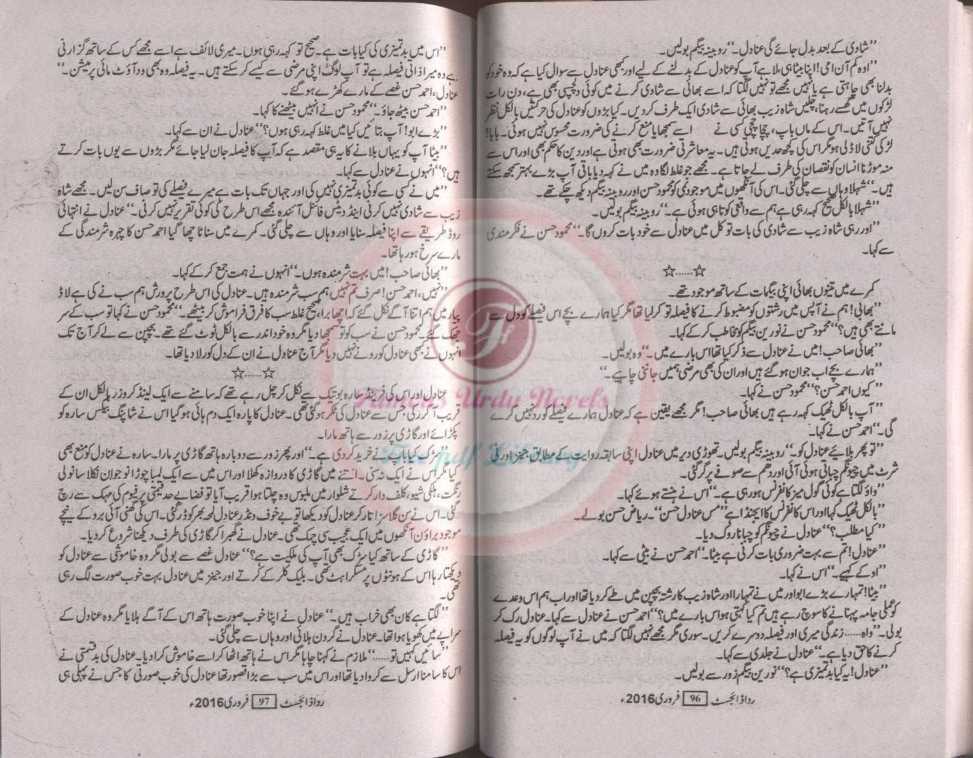 "شادی کے بعد بدل جائے گی عنادل۔" روبینہ بیگم بولیں۔
"اوہ کم آن امی! اپنا بیٹا ہی ملا ہے آپ کو عنادل کے بدلنے کے لیے اور کبھی عنادل سے سوال کیا ہے کہ وہ خود کو
بدلنا بھی چاہتی ہے یا نہیں مجھے تو نہیں لگتا کہ اسے بھائی سے شادی کرنے میں کوئی دلچسپی بھی ہے، دن رات
لڑکوں میں گھسے رہنا، چلیں شاہ زیب بھائی سے شادی ایک طرف کر دیں۔ کیا بڑوں کو عنادل کی حرکتیں بالکل نظر
نہیں آتیں۔ اس کے ماں باپ، چچا چچی کسی نے اسے سمجھایا منع کرنے کی ضرورت محسوس نہیں ہوئی۔ بابا!
لڑکی کتنی لاڈلی ہو مگر اس کی کچھ حدیں ہوتی ہیں۔ یہ معاشرتی ضرورت بھی ہوتی ہے اور دین کا حکم بھی اور اس سے
منہ موڑنا انسان کو نقصان کی طرف لے جاتا ہے۔ مجھے جو غلط لگا وہ میں نے کہہ دیا باقی آپ بڑے بہتر سمجھ سکتے
ہیں۔" شہلا وہاں سے چلی گئی۔ اس کی آنکھوں میں موجود نمی کو محمود حسن اور روبینہ بیگم دیکھ چکے تھے۔
"شہلا بالکل صحیح کہہ رہی ہے ہم سے واقعی کوتاہی ہوئی ہے۔" روبینہ بیگم بولیں۔
"اور رہی شاہ زیب سے شادی کی بات تو کل میں عنادل سے خود بات کروں گا۔" محمود حسن نے فکر مندی
سے کہا۔
☆……☆
کمرے میں تینوں بھائی اپنی بیگمات کے ساتھ موجود تھے۔
"بھائی! ہم نے آپس میں رشتوں کو مضبوط کرنے کا فیصلہ تو کر لیا تھا مگر کیا ہمارے بچے اس فیصلے کو دل سے
مانتے بھی ہیں؟" محمود حسن نے نورین بیگم کو مخاطب کر کے کہا۔
"بھائی صاحب! میں نے عنادل سے ذکر کیا تھا اس بارے میں۔" وہ بولیں۔
"ہمارے بچے اب جوان ہو گئے ہیں اور ان کی بھی مرضی ہمیں جاننی چاہیے۔"
"کیوں احمد حسن؟" محمود حسن نے کہا۔
"آپ بالکل ٹھیک کہہ رہے ہیں بھائی صاحب! مگر مجھے یقین ہے کہ عنادل ہمارے فیصلے کو رد نہیں کرے
گی۔" احمد حسن نے کہا۔
"تو پھر بلائیے عنادل کو۔" روبینہ بیگم بولیں۔ تھوڑی دیر میں عنادل اپنی سابقہ روایت کے مطابق جینز اور ٹی
شرٹ میں چیونگم چباتی ہوئی آئی اور دھم سے صوفے پر گر گئی۔
"واؤ لگتا ہے کوئی گول میز کانفرنس ہو رہی ہے۔" اس نے ہنستے ہوئے کہا۔
"بالکل ٹھیک کہا اور اس کانفرنس کا ایجنڈا ہے "مس عنادل حسن"۔ ریاض حسن بولے۔
"کیا مطلب؟" عنادل نے چیونگم کو چبانا روک دیا۔
"عنادل! ہم سے بہت ضروری بات کرنی ہے بیٹا۔" احمد حسن نے بیٹی سے کہا۔
"اوکے کہیے۔" اس نے کہا۔
"بیٹا! تمہارے بڑے ابو اور میں نے تمہارا اور شاہ زیب کا رشتہ بچپن میں طے کر دیا تھا اور اب ہم اس وعدے
کو عملی جامہ پہنانے کا سوچ رہے ہیں تم کیا کہتی ہو اس بارے میں؟" احمد حسن نے کہا۔ عنادل رک کر
بولی۔ "واہ…… زندگی میری اور فیصلہ دوسرے کریں۔ سوری مگر مجھے نہیں لگتا کہ میں نے آپ لوگوں کو یہ فیصلہ
کرنے کا حق دیا ہے۔" عنادل نے جلدی سے کہا۔
"عنادل! یہ کیا بدتمیزی ہے؟" نورین بیگم زور سے بولیں۔
ردا ڈائجسٹ 96 فروری 2016ء
"اس میں بدتمیزی کی کیا بات ہے۔ صحیح تو کہہ رہی ہوں۔ میری لائف ہے اسے مجھے کس کے ساتھ گزارنی
ہے وہ میرا ذاتی فیصلہ ہے تو آپ لوگ اپنی مرضی سے کیسے کر سکتے ہیں۔ یہ فیصلہ وہ بھی ود آؤٹ مائی پرمیشن۔"
عنادل، احمد حسن غصے کے مارے کھڑے ہو گئے۔
"احمد حسن بیٹھ جاؤ۔" محمود حسن نے انہیں بیٹھنے کا کہا۔
"بڑے ابو! آپ بتائیں کیا میں غلط کہہ رہی ہوں؟" عنادل نے ان سے کہا۔
"بیٹا آپ کو یہاں بلانے کا یہی مقصد ہے کہ آپ کا فیصلہ جان لیا جائے مگر بڑوں سے یوں بات کرتے
ہیں؟" انہوں نے عنادل سے کہا۔
"میں نے کسی سے کوئی بدتمیزی نہیں کی اور جہاں تک بات ہے میرے فیصلے کی تو صاف سن لیں۔ مجھے شاہ
زیب سے شادی نہیں کرنی اینڈ دیٹس فائنل آئندہ مجھے اس طرح کی کوئی تقریر نہیں کرنی۔" عنادل نے انتہائی
روڈ طریقے سے اپنا فیصلہ سنایا اور وہاں سے چلی گئی۔ کمرے میں سناٹا چھا گیا احمد حسن کا چہرہ شرمندگی کے
مارے سرخ ہو رہا تھا۔
"بھائی صاحب! میں بہت شرمندہ ہوں۔" انہوں نے ہمت جمع کر کے کہا۔
"نہیں، احمد حسن! صرف تم نہیں ہم سب شرمندہ ہیں۔ عنادل کی اس طرح پرورش ہم سب نے کی ہے لاڈ
پیار میں ہم اتنا آگے نکل گئے کہ اچھا برا، صحیح غلط سب کا فرق فراموش کر بیٹھے۔" محمود حسن نے کہا تو سب کے سر
جھک گئے۔ محمود حسن نے سب کو تو سمجھا دیا مگر وہ خود اندر سے بالکل ٹوٹ گئے تھے۔ بچپن سے لے کر آج تک
انہوں نے بھی عنادل کو رونے نہیں دیا مگر آج عنادل نے ان کے دل کو رلا دیا تھا۔
☆……☆
عنادل اور اس کی فرینڈ سارہ بوتیک سے نکل کر چل رہے تھے کہ سامنے سے ایک لینڈ کروزر بالکل ان کے
قریب آ کر رکی جس سے عنادل کی ٹکر ہو گئی تھی۔ عنادل کا پارہ ایک دم ہائی ہو گیا اس نے شاپنگ بیگس سارہ کو
پکڑائے اور گاڑی پر زور سے ہاتھ مارا۔
"سڑک کیا باپ نے خرید کر دی ہے۔" اور پھر زور سے دوبارہ ہاتھ گاڑی پر مارا۔ سارہ نے عنادل کو منع بھی
کیا مگر اس نے ایک نہ سنی۔ اتنے میں گاڑی کا دروازہ کھلا اور اس میں سے ایک لمبا چوڑا نوجوان نکلا سانولی
رنگت، ہلکی شیو، کلف دار کرتے شلوار میں ملبوس وہ چلتا ہوا قریب آیا تو فضا بے حد قیمتی پرفیوم کی مہک سے رچ
گئی۔ اس نے سن گلاسز اتار کر عنادل کو دیکھا تو بے خوف و نڈر عنادل لمحہ بھر کو ڈر گئی۔ اس کی گھنی آئی برو کے نیچے
موجود براؤن آنکھوں میں ایک عجیب سی چمک تھی۔ عنادل نے گھبرا کر گاڑی کی طرف دیکھنا شروع کر دیا۔
"گاڑی کے ساتھ کیا سڑک بھی آپ کی ملکیت ہے؟" عنادل غصے سے بولی مگر وہ خاموشی سے عنادل کو
دیکھتا رہا اس کے ہونٹوں پر مسکراہٹ تھی۔ بلیک کلر کے کرتے اور جینز میں عنادل بہت خوب صورت لگ رہی
تھی۔
"لگتا ہے کان بھی خراب ہیں۔" عنادل نے اپنا خوب صورت ہاتھ اس کے آگے ہلایا مگر وہ عنادل کے
سراپے میں کھویا ہوا تھا۔ عنادل نے گردن ہلائی اور وہاں سے چلی گئی۔
"سائیں کہیں تو……" ملازم نے کہنا چاہا مگر اس نے ہاتھ اٹھا کر اسے خاموش کرا دیا۔ عنادل کی بدقسمتی نے
اس کا سامنا ارسل سے کروا دیا تھا اور اس میں سب سے بڑا قصور تھا عنادل کی خوب صورتی کا جس نے پہلی ہی
ردا ڈائجسٹ 97 فروری 2016ء
Urdu Novels